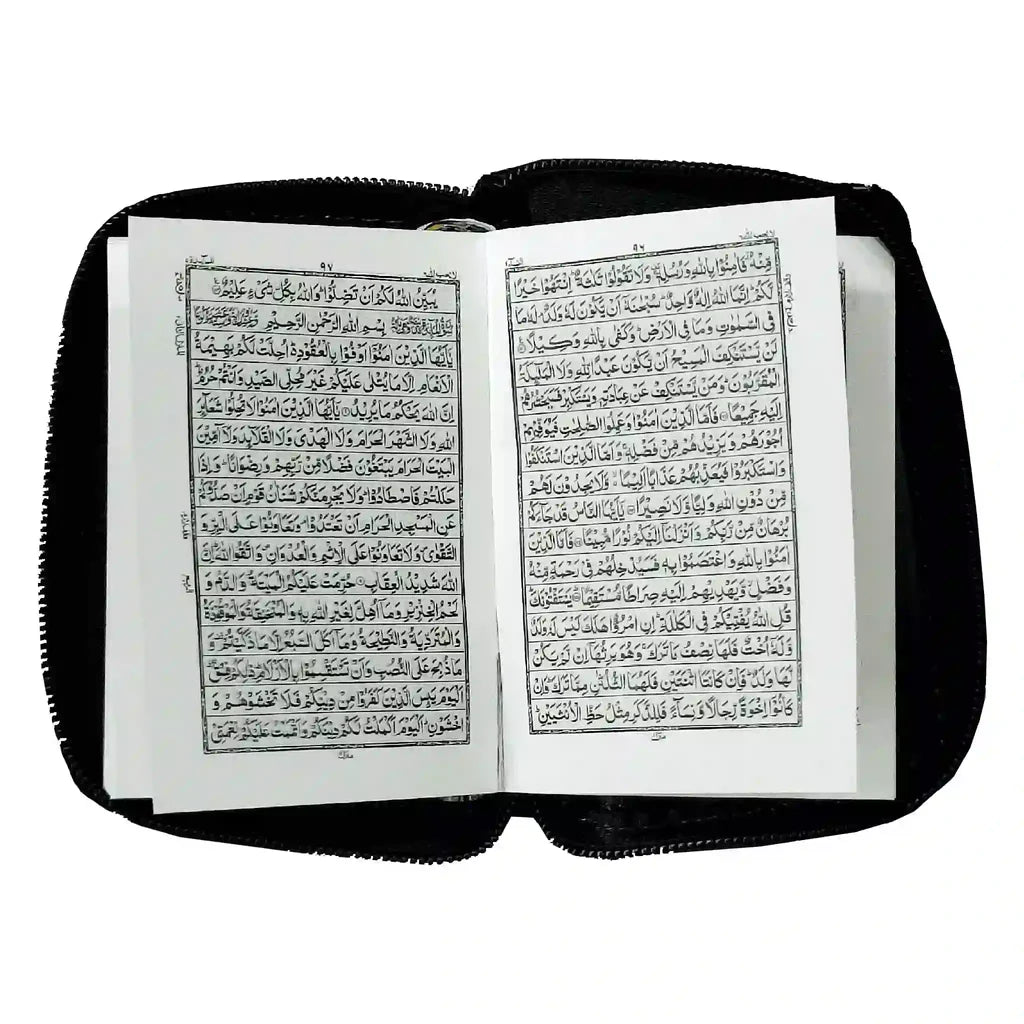 لا يحب الله ٦
٩٦
النسآء ٤
مِّنْهُ فَاٰمِنُوْا بِاللّٰهِ وَرُسُلِهٖ وَلَا تَقُوْلُوْا ثَلٰثَةٌ اِنْتَهُوْا خَيْرًا
لَّكُمْ اِنَّمَا اللّٰهُ اِلٰهٌ وَّاحِدٌ سُبْحٰنَهٗٓ اَنْ يَّكُوْنَ لَهٗ وَلَدٌ لَهٗ مَا
فِى السَّمٰوٰتِ وَمَا فِى الْاَرْضِ وَكَفٰى بِاللّٰهِ وَكِيْلًا
لَنْ يَّسْتَنْكِفَ الْمَسِيْحُ اَنْ يَّكُوْنَ عَبْدًا لِّلّٰهِ وَلَا الْمَلٰٓئِكَةُ
الْمُقَرَّبُوْنَ وَمَنْ يَّسْتَنْكِفْ عَنْ عِبَادَتِهٖ وَيَسْتَكْبِرْ فَسَيَحْشُرُهُمْ
اِلَيْهِ جَمِيْعًا فَاَمَّا الَّذِيْنَ اٰمَنُوْا وَعَمِلُوا الصّٰلِحٰتِ فَيُوَفِّيْهِمْ
اُجُوْرَهُمْ وَيَزِيْدُهُمْ مِّنْ فَضْلِهٖ وَاَمَّا الَّذِيْنَ اسْتَنْكَفُوْا
وَاسْتَكْبَرُوْا فَيُعَذِّبُهُمْ عَذَابًا اَلِيْمًا وَّلَا يَجِدُوْنَ لَهُمْ
مِّنْ دُوْنِ اللّٰهِ وَلِيًّا وَّلَا نَصِيْرًا يٰٓاَيُّهَا النَّاسُ قَدْ جَآءَكُمْ
بُرْهَانٌ مِّنْ رَّبِّكُمْ وَاَنْزَلْنَآ اِلَيْكُمْ نُوْرًا مُّبِيْنًا فَاَمَّا الَّذِيْنَ
اٰمَنُوْا بِاللّٰهِ وَاعْتَصَمُوْا بِهٖ فَسَيُدْخِلُهُمْ فِىْ رَحْمَةٍ مِّنْهُ
وَفَضْلٍ وَّيَهْدِيْهِمْ اِلَيْهِ صِرَاطًا مُّسْتَقِيْمًا يَسْتَفْتُوْنَكَ
قُلِ اللّٰهُ يُفْتِيْكُمْ فِى الْكَلٰلَةِ اِنِ امْرُؤٌا هَلَكَ لَيْسَ لَهٗ وَلَدٌ
وَّلَهٗٓ اُخْتٌ فَلَهَا نِصْفُ مَا تَرَكَ وَهُوَ يَرِثُهَآ اِنْ لَّمْ يَكُنْ
لَّهَا وَلَدٌ فَاِنْ كَانَتَا اثْنَتَيْنِ فَلَهُمَا الثُّلُثٰنِ مِمَّا تَرَكَ وَاِنْ
كَانُوْٓا اِخْوَةً رِّجَالًا وَّنِسَآءً فَلِلذَّكَرِ مِثْلُ حَظِّ الْاُنْثَيَيْنِ
منزل
لا يحب الله
٩٧
المآئدة ٥
يُبَيِّنُ اللّٰهُ لَكُمْ اَنْ تَضِلُّوْا وَاللّٰهُ بِكُلِّ شَىْءٍ عَلِيْمٌ
بِسْمِ اللّٰهِ الرَّحْمٰنِ الرَّحِيْمِ
يٰٓاَيُّهَا الَّذِيْنَ اٰمَنُوْٓا اَوْفُوْا بِالْعُقُوْدِ اُحِلَّتْ لَكُمْ بَهِيْمَةُ
الْاَنْعَامِ اِلَّا مَا يُتْلٰى عَلَيْكُمْ غَيْرَ مُحِلِّى الصَّيْدِ وَاَنْتُمْ حُرُمٌ
اِنَّ اللّٰهَ يَحْكُمُ مَا يُرِيْدُ يٰٓاَيُّهَا الَّذِيْنَ اٰمَنُوْا لَا تُحِلُّوْا شَعَآئِرَ
اللّٰهِ وَلَا الشَّهْرَ الْحَرَامَ وَلَا الْهَدْىَ وَلَا الْقَلَآئِدَ وَلَآ آٰمِّيْنَ
الْبَيْتَ الْحَرَامَ يَبْتَغُوْنَ فَضْلًا مِّنْ رَّبِّهِمْ وَرِضْوَانًا وَاِذَا
حَلَلْتُمْ فَاصْطَادُوْا وَلَا يَجْرِمَنَّكُمْ شَنَاٰنُ قَوْمٍ اَنْ صَدُّوْكُمْ
عَنِ الْمَسْجِدِ الْحَرَامِ اَنْ تَعْتَدُوْا وَتَعَاوَنُوْا عَلَى الْبِرِّ وَ
التَّقْوٰى وَلَا تَعَاوَنُوْا عَلَى الْاِثْمِ وَالْعُدْوَانِ وَاتَّقُوا اللّٰهَ اِنَّ
اللّٰهَ شَدِيْدُ الْعِقَابِ حُرِّمَتْ عَلَيْكُمُ الْمَيْتَةُ وَالدَّمُ وَ
لَحْمُ الْخِنْزِيْرِ وَمَآ اُهِلَّ لِغَيْرِ اللّٰهِ بِهٖ وَالْمُنْخَنِقَةُ وَالْمَوْقُوْذَةُ
وَالْمُتَرَدِّيَةُ وَالنَّطِيْحَةُ وَمَآ اَكَلَ السَّبُعُ اِلَّا مَا ذَكَّيْتُمْ وَ
مَا ذُبِحَ عَلَى النُّصُبِ وَاَنْ تَسْتَقْسِمُوْا بِالْاَزْلَامِ ذٰلِكُمْ فِسْقٌ
اَلْيَوْمَ يَئِسَ الَّذِيْنَ كَفَرُوْا مِنْ دِيْنِكُمْ فَلَا تَخْشَوْهُمْ وَ
اخْشَوْنِ اَلْيَوْمَ اَكْمَلْتُ لَكُمْ دِيْنَكُمْ وَاَتْمَمْتُ عَلَيْكُمْ نِعْمَتِىْ
منزل